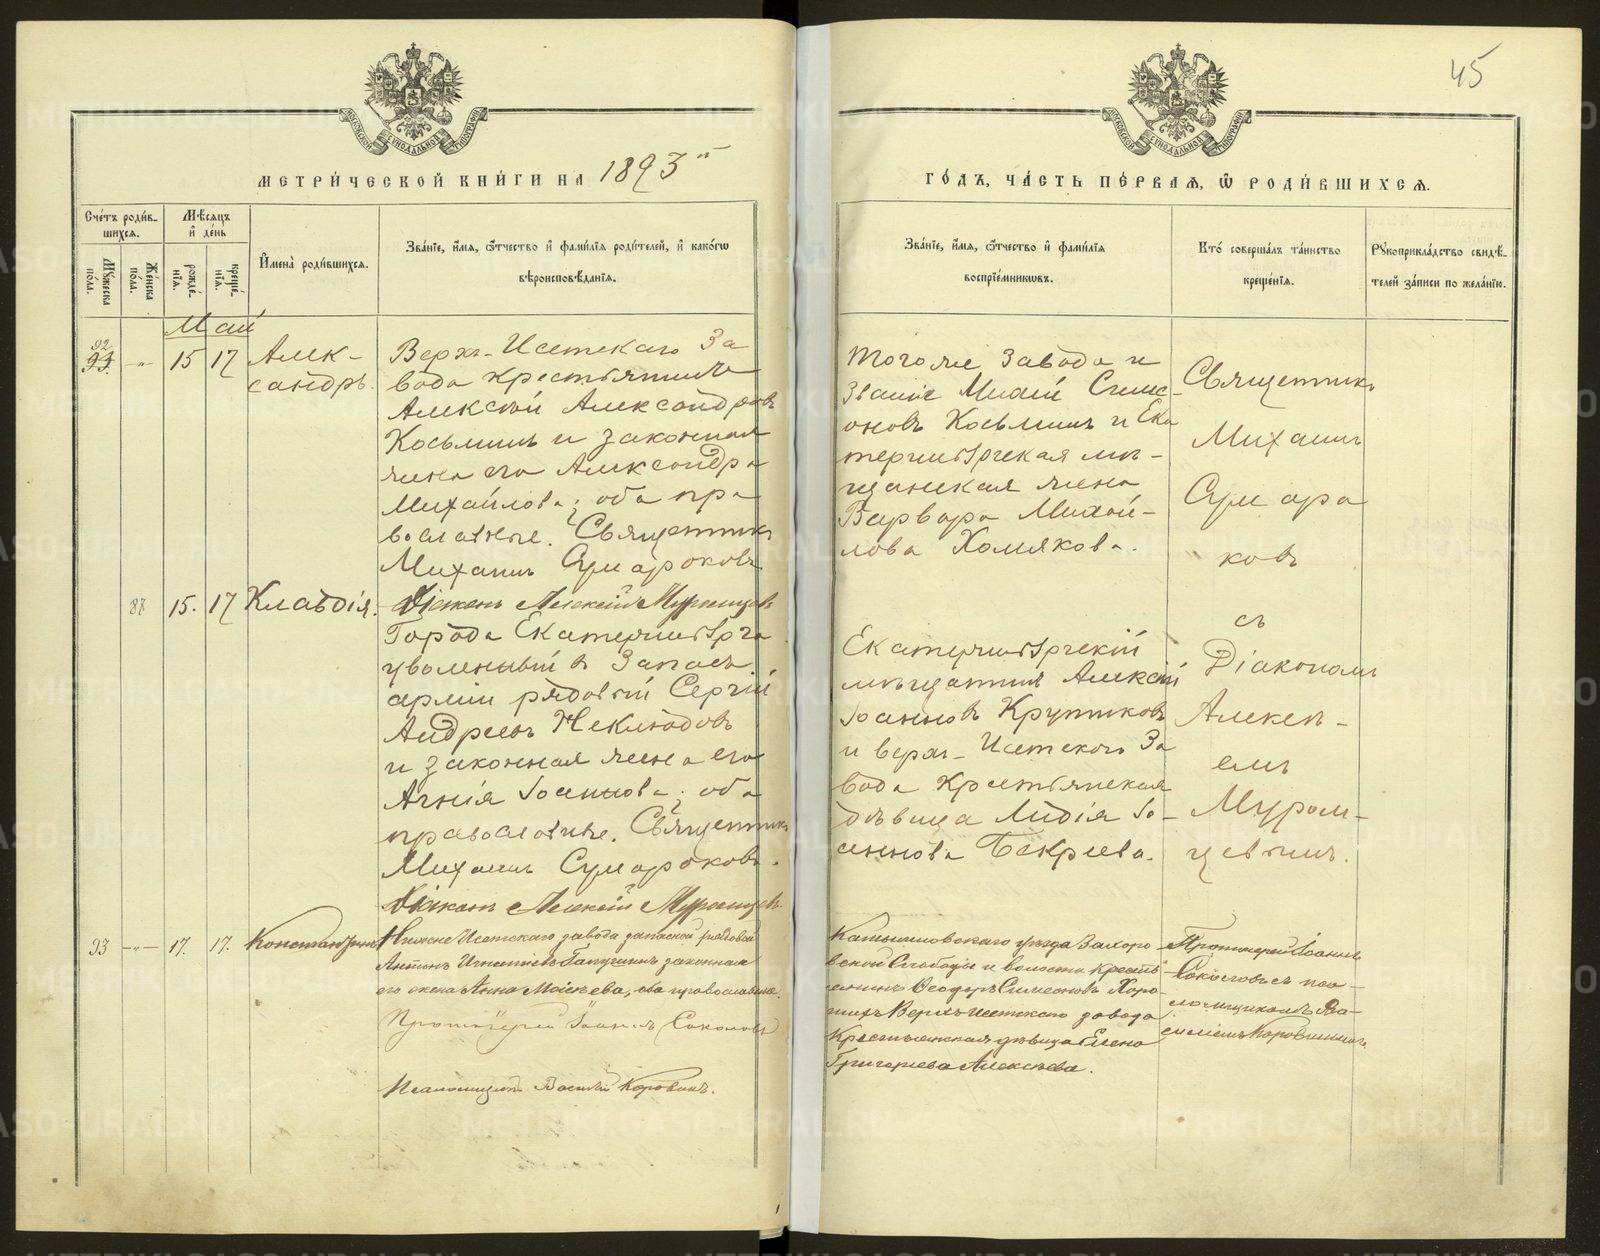 45
МОСКОВСКОЙ СѴНОДАЛЬНОЙ ТИПОГРАФІИ
МОСКОВСКОЙ СѴНОДАЛЬНОЙ ТИПОГРАФІИ
МЕТРИ́ЧЕСКОЙ КНИ́ГИ НА 1893й
ГО́ДЪ, ЧА́СТЬ ПЕ́РВАЯ, Ѡ РОДИ́ВШИХСЯ.
Сче́тъ роди́в-
шихся.
Мꙋжеска по́ла.
Же́нска по́ла.
Мѣ́сяцъ
и҆ де́нь
рожде́-
нїя.
креще́-
нїя.
И҆мена̀ роди́вшихся.
Зва́нїе, и҆́мя, ѻ҆́тчество и҆ фами́лїя роди́телей, и҆ како́гѡ
вѣроисповѣ́данїя.
Зва́нїе, и҆́мя, ѻ҆́тчество и҆ фами́лїя
воспрїе́мникѡвъ.
Кто̀ соверша́лъ та́инство
креще́нїя.
Рꙋкоприкла́дство свидѣ́-
телей за́писи по жела́нїю.
Май
92
93.
"
15
17
Алек-
сандръ.
Верхъ-Исетскаго За
вода крестьянинъ
Алексѣй Александровъ
Косьминъ и законная
жена его Александра
Михайлова; оба пра
вославные. Священникъ
Михаилъ Сумароковъ
Діаконъ Алексій Муромцевъ
Тогоже Завода и
званія Михей Симе-
оновъ Косьминъ и Ека
теринбургская мѣ-
щанская жена
Варвара Михай-
лова Хомякова.
Священникъ
Михаилъ
Сумаро
ковъ
съ
Діакономъ
Алексѣ-
емъ
Муром-
цевымъ.
88
15.
17
Клавдія.
Города Екатеринбурга
уволенный в Запасъ
арміи рядовой Сергій
Андреевъ Неклюдовъ
и законная жена его
Агнія Іоаннова; оба
православные. Священникъ
Михаилъ Сумароковъ.
Діаконъ Алексій Муромцевъ
Екатеринбургскій
мѣщанинъ Алексѣй
Іоанновъ Крутиковъ
и верхъ-Исетскаго За
вода Крестьянская
дѣвица Лидія Іо-
аннова Бекрева.
93
-"-
17.
17.
Константинъ
Нижне Исетскаго завода запасной рядовой
Антонъ Игнатіевъ Гапушинъ законная
его жена Анна Моисѣева, оба православные.
Протоіерей Іоаннъ Соколовъ
Псаломщикъ Василій Коровинъ.
Камышловскаго уѣзда Захаро
вской Слободы и волости крестья
янинъ Ѳеодоръ Симеоновъ Хоро
шихъ Верхъ Исетскаго завода
Крестьянская дѣвица Елена
Григорьева Алексѣева.
Протоіерей Іоаннъ
Соколовъ съ пса-
ломщикомъ Ва-
силіемъ Коровинымъ.
METRIKI.GASO-URAL.RU